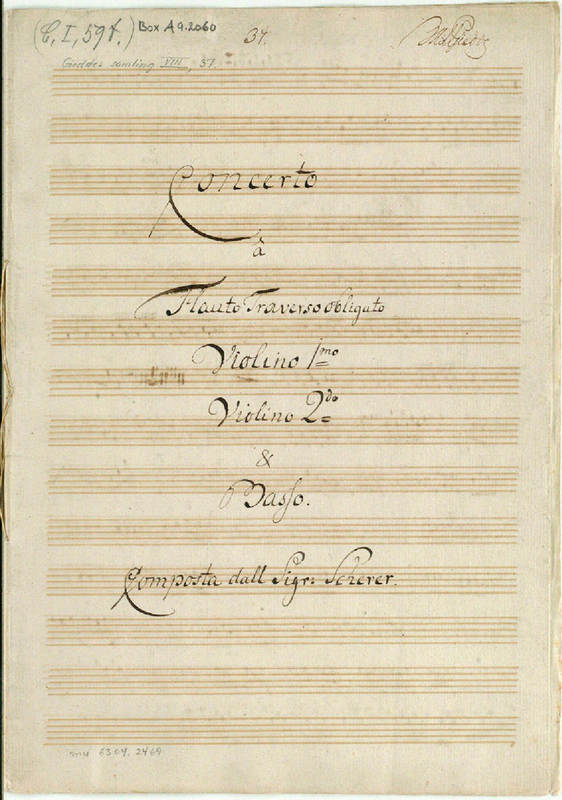 (C, I, 59t.) Box A 9.2060
37.
Gieddes samling VIII, 37.
Concerto
â
Flauto Traverso obligato
Violino 1mo
Violino 2do
&
Basso.
Composta dall Sigr: Scherer.
mu 6304. 2469